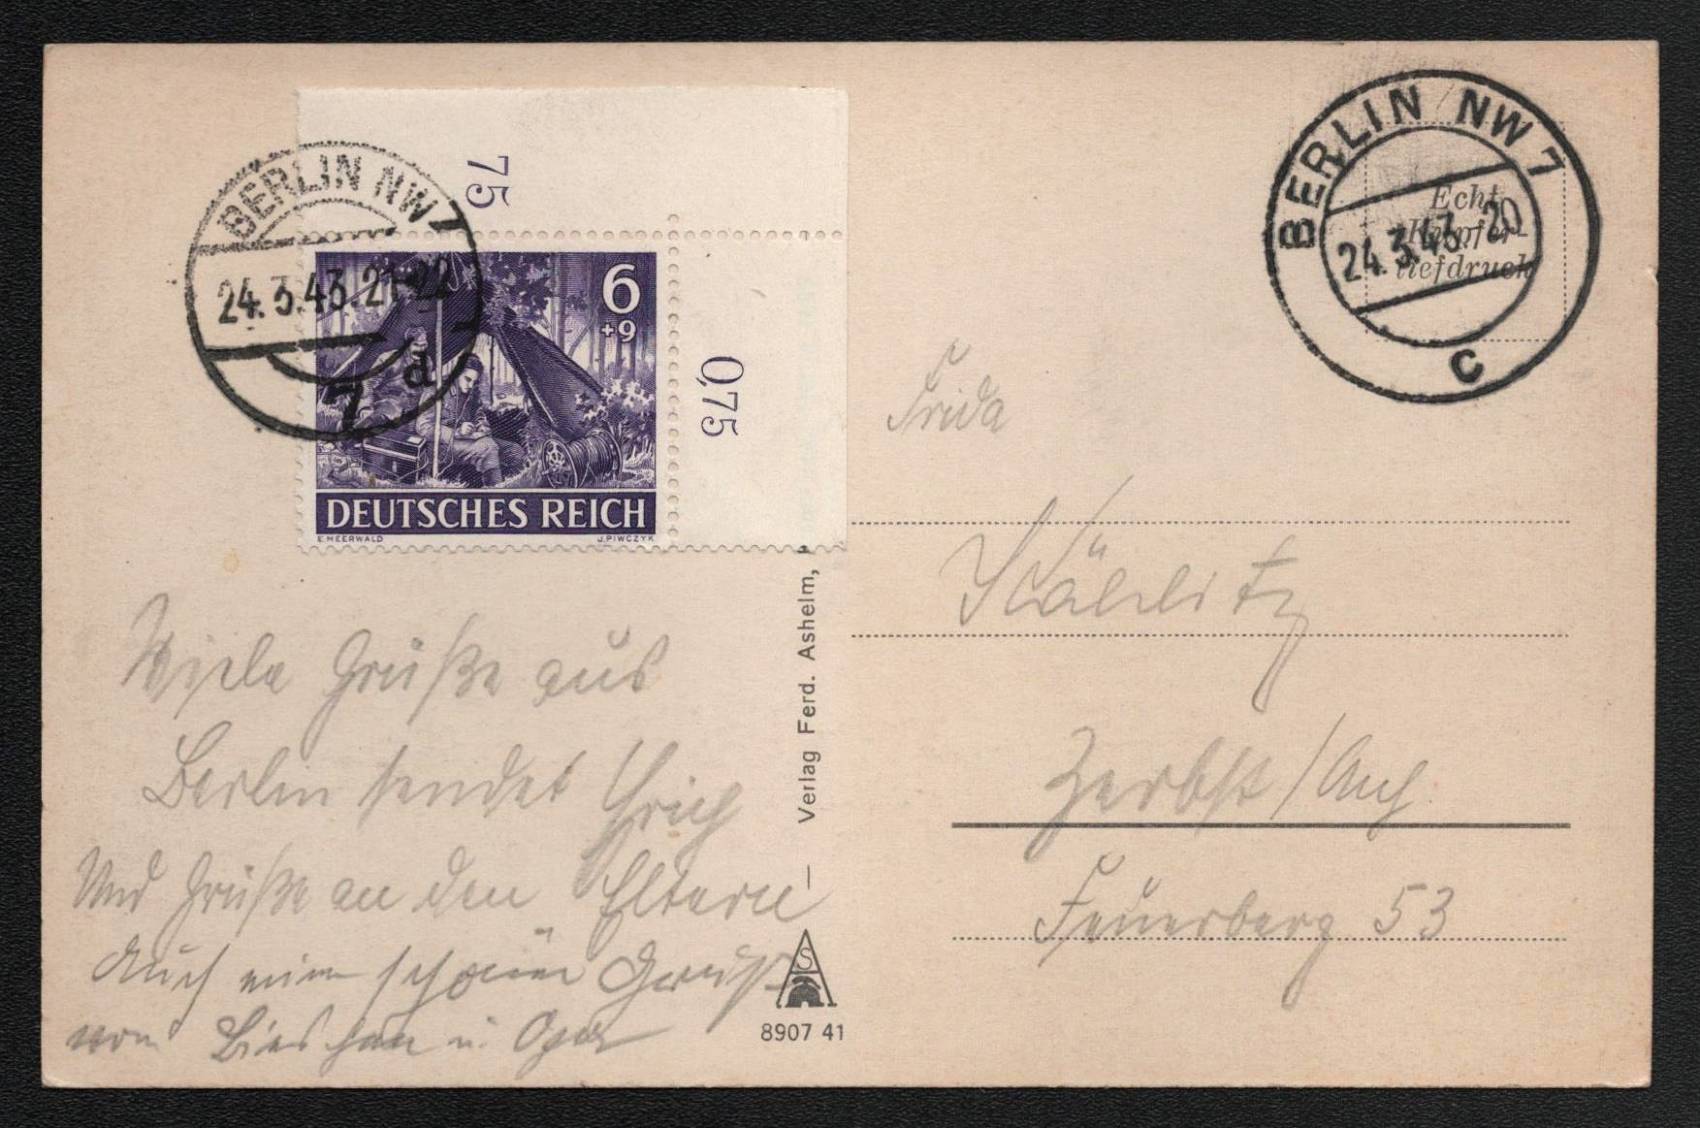 BERLIN NW 7
24.3.43.21-22
7 d
75
6
+9
0,75
DEUTSCHES REICH
E.MEERWALD
J.PIWCZYK
Viele Grüße aus
Berlin sendet Erich
Und Grüße an den Eltern
Auch schönen
von u. Opa
Verlag Ferd. Ashelm,
AS
8907 41
BERLIN NW 7
24.3.43.-20
c
Echt
Kupfer-
tiefdruck
Frida
Zerbst / Anh.
Feuerberg 53